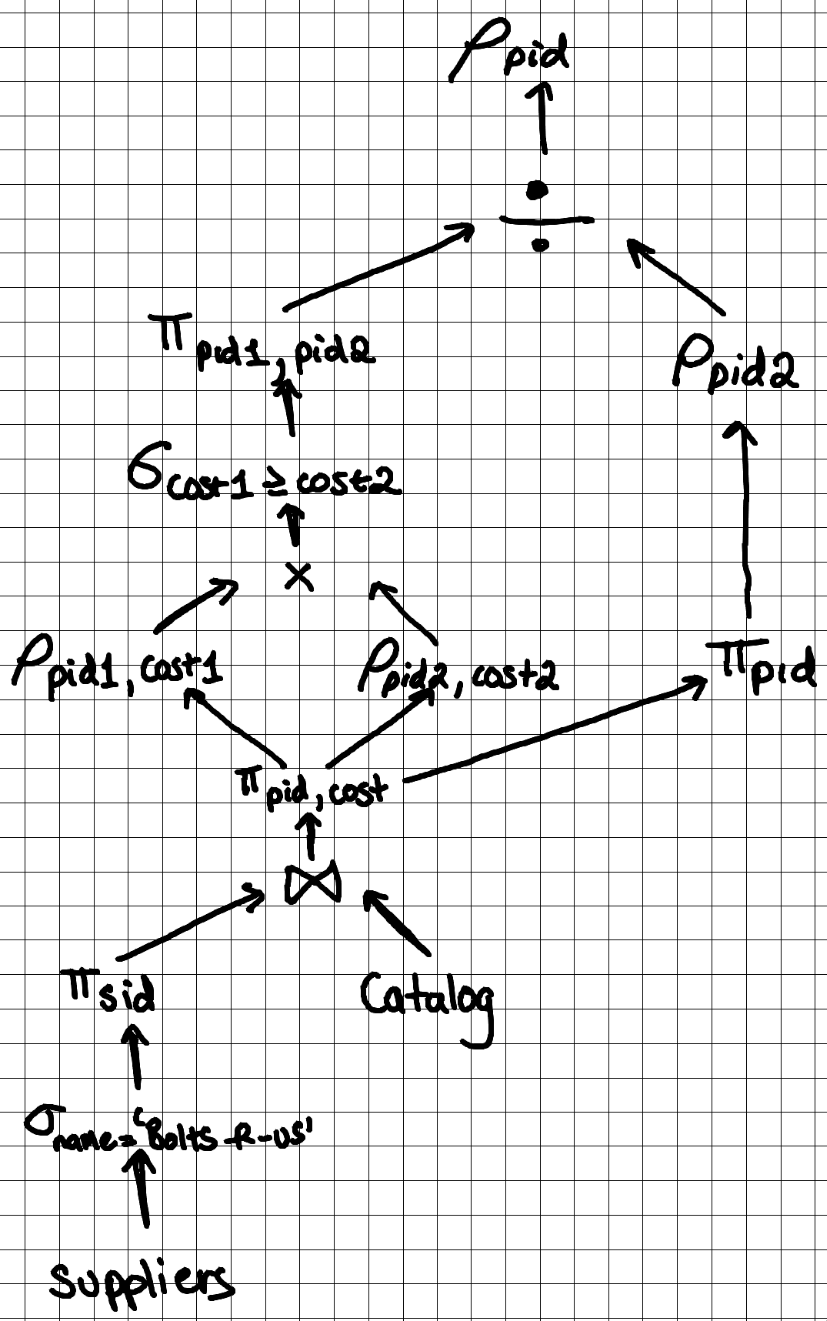 ρpid
÷
πpid1, pid2
ρpid2
σcost1 ≥ cost2
×
ρpid1, cost1
ρpid2, cost2
πpid
πpid, cost
⋈
πsid
Catalog
σname='Bolts-R-US'
Suppliers